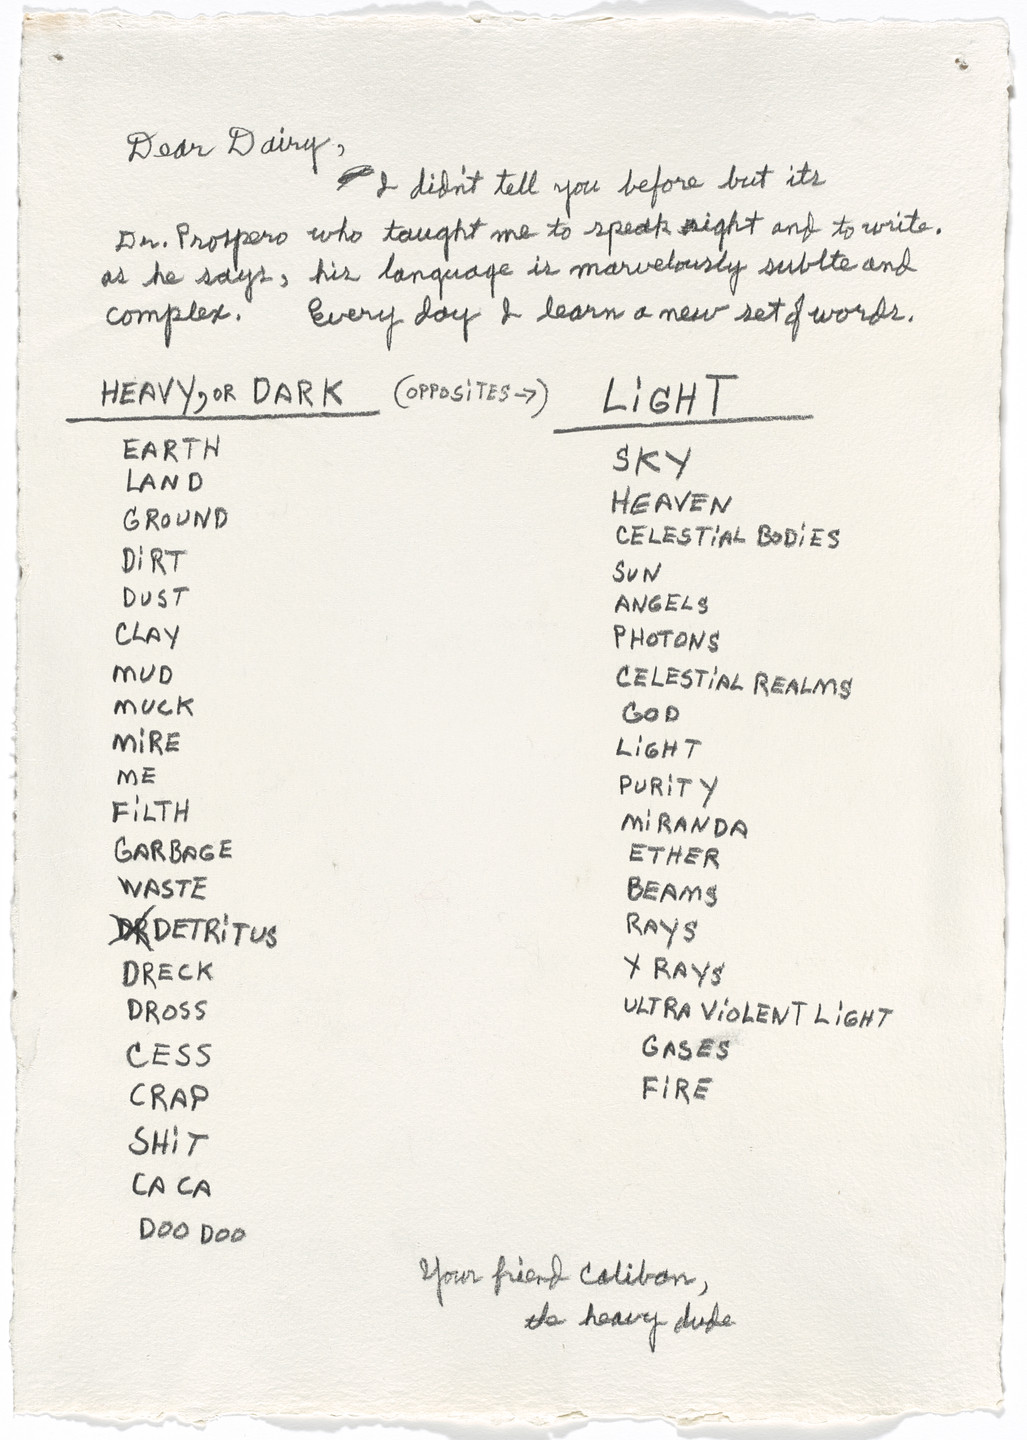 Dear Dairy,
I didn't tell you before but its
Dr. Prospero who taught me to speak right and to write.
as he says, his language is marvelously sublte and
complex. Every day I learn a new set of words.
HEAVY, OR DARK (OPPOSITES →) LIGHT
EARTH
LAND
GROUND
DIRT
DUST
CLAY
MUD
MUCK
MIRE
ME
FILTH
GARBAGE
WASTE
DR DETRITUS
DRECK
DROSS
CESS
CRAP
SHIT
CA CA
DOO DOO
SKY
HEAVEN
CELESTIAL BODIES
SUN
ANGELS
PHOTONS
CELESTIAL REALMS
GOD
LIGHT
PURITY
MIRANDA
ETHER
BEAMS
RAYS
X RAYS
ULTRA VIOLENT LIGHT
GASES
FIRE
Your friend Caliban,
the heavy dude